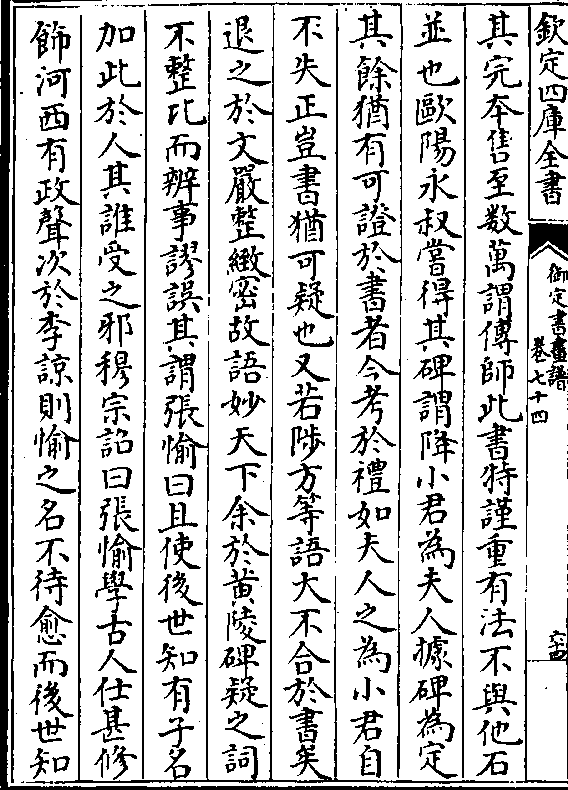 欽定四庫全書
御定書畫譜
卷七十四
六十四
其完本售至数萬謂傳師此書特謹重有法不與他石
並也歐陽永叔嘗得其碑謂降小君為夫人據碑為定
其餘猶有可證於書者今考於禮如夫人之為小君自
不失正豈書猶可疑也又若陟方等語大不合於書矣
退之於文嚴整緻密故語妙天下余於黄陵碑疑之詞
不整比而辨事謬誤其謂張愉曰且使後世知有子名
加此於人其誰受之邪穆宗詔曰張愉學古人仕甚修
飾河西有政聲次於李諒則愉之名不待愈而後世知